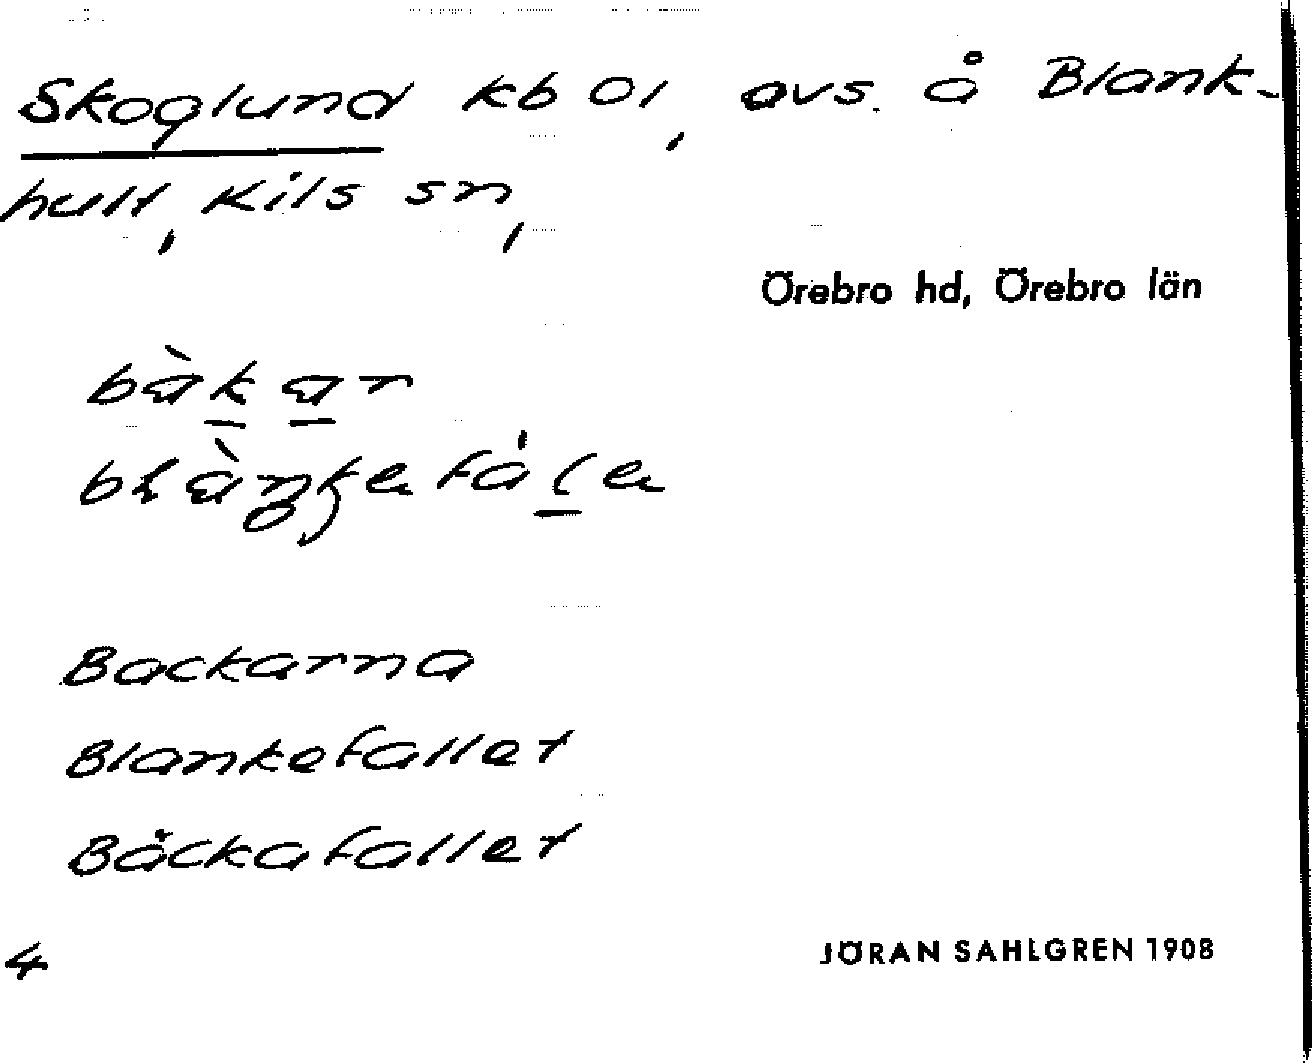 Skoglund kb Ol, avs. å Blank-
hult, Kils sn,
Örebro hd, Örebro län
bàkar
Backarna
Blankefallet
Bäckafallet
4
JÖRAN SAHLGREN 1908